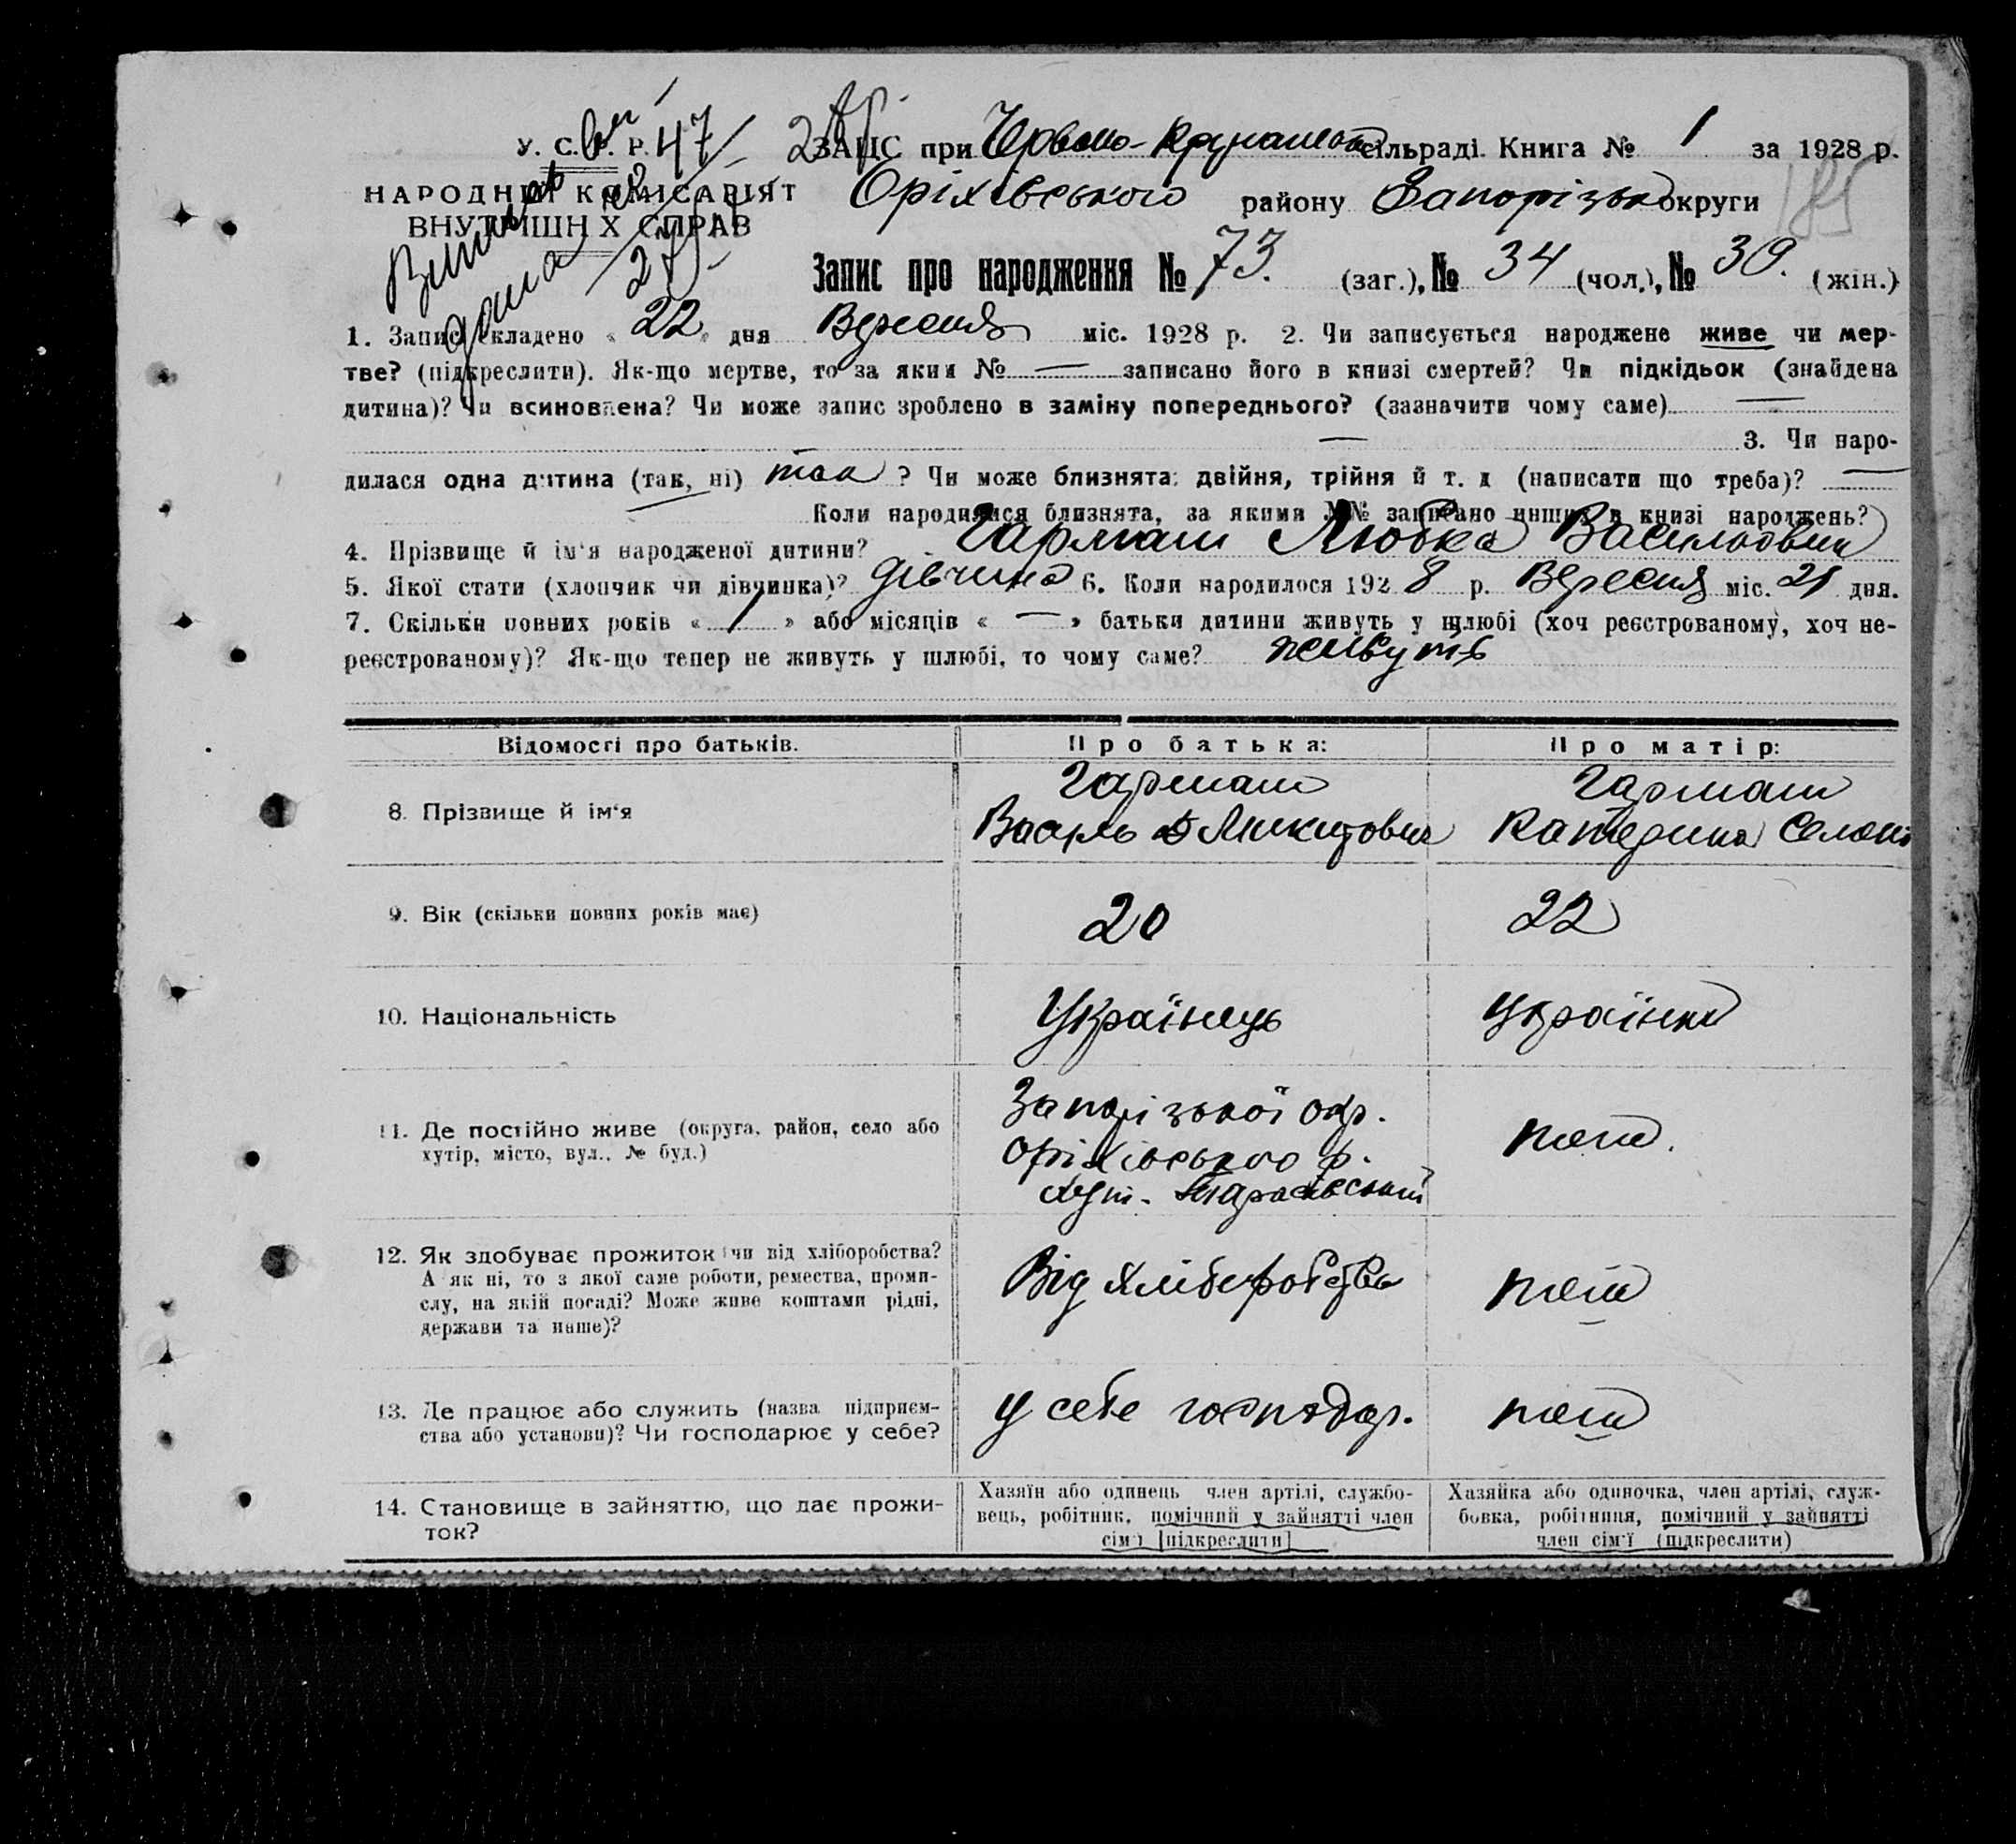 У. С. Р. Р. 47 ЗАЦС при Червоно- сільраді. Книга № 1 за 1928 р.
НАРОДНИЙ КОМІСАРІЯТ Оріхівського району Запорізької округи 185
ВНУТРІШНІХ СПРАВ
Запис про народження № 73. (заг.), № 34 (чол.), № 39. (жін.)
1. Запис складено « 22 » дня Вересня міс. 1928 р. 2. Чи записується народжене живе чи мер-
тве? (підкреслити). Як-що мертве, то за яким № — записано його в книзі смертей? Чи підкідьок (знайдена
дитина)? Чи всиновлена? Чи може запис зроблено в заміну попереднього? (зазначити чому саме) —
— 3. Чи наро-
дилася одна дитина (так, ні) так ? Чи може близнята: двійня, трійня й т. д (написати що треба)? —
Коли народилися близнята, за якими №№ записано инших в книзі народжень?
4. Прізвище й ім'я народженої дитини? Гармаш Любка Васильовна
5. Якої стати (хлопчик чи дівчинка)? дівчина 6. Коли народилося 1928 р. Вересня міс. 21 дня.
7. Скільки повних років « 1 » або місяців « — » батьки дитини живуть у шлюбі (хоч реєстрованому, хоч не-
реєстрованому)? Як-що тепер не живуть у шлюбі, то чому саме? живуть
Відомості про батьків. Про батька: Про матір:
8. Прізвище й ім'я
Гармаш
Василь Микитович
Гармаш
Катерина
9. Вік (скільки повних років має) 20 22
10. Національність Українець Українка
11. Де постійно живе (округа, район, село або
хутір, місто, вул., № буд.)
Запорізької окр.
Оріхівського р.
хут.
тет.
12. Як здобуває прожиток (чи від хліборобства?
А як ні, то з якої саме роботи, ремества, проми-
слу, на якій посаді? Може живе коштами рідні,
держави та инше)?
Від хліборобства
13. Де працює або служить (назва підприєм-
ства або установи)? Чи господарює у себе?
У себе господар.
14. Становище в зайняттю, що дає прожи-
ток?
Хазяїн або одинець член артілі, службо-
вець, робітник, помічний у зайнятті член
сім'ї [підкреслити]
Хазяйка або одиночка, член артілі, служ-
бовка, робітниця, помічний у зайнятті
член сім'ї (підкреслити)